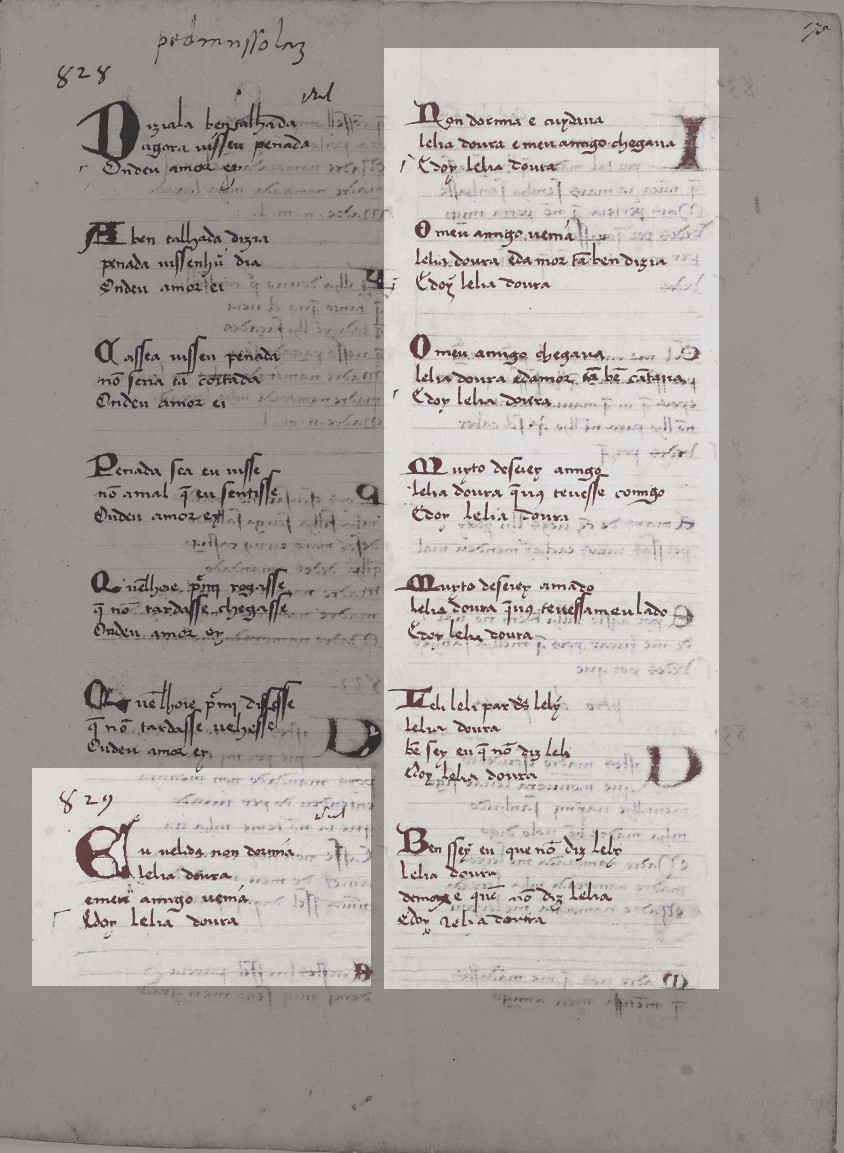 pedranssolaz
175
828
Dizia la ben talhada
agora uissen penada
Ondeu amor ey
A ben talhada dizia
penada uissenhũ dia
Ondeu amor ei
Ca ssea uissen penada
nõ seria tã coitada
Ondeu amor ei
Penada sea eu uisse
nõ a mal q̃ eu sentisse
Ondeu amor ey
Quẽ lhoie p̃ mi rogasse
q̃ nõ tardasse chegasse
Ondeu amor ey
Quẽ lhoie p̃ mi dissesse
q̃ nõ tardasse uehesse
Ondeu amor ey
829
Eu uelida non dormia
lelia doura
e meu amigo uenia
Edoy lelia doura
Non dormia e cuydaua
lelia doura e meu amigo chegaua
Edoy lelia doura
O meu amigo uenia
lelia doura e damor tã ben dizia
Edoy lelia doura
O meu amigo chegaua
lelia doura e damor tã bẽ cantaua
Edoy lelia doura
Muyto deseiey amigo
lelia doura q̃ uꝯ teuesse comigo
Edoy lelia doura
Muyto deseiey amado
lelia doura q̃ uꝯ teuessa meu lado
Edoy lelia doura
Leli leli par ds̃ lely
lelia doura
bẽ sey eu q̃ nõ diz leli
Edoy lelia doura
Ben ssey eu que nõ diz lely
lelia doura
demo x e quẽ nõ diz lelia
Edoy lelia doura